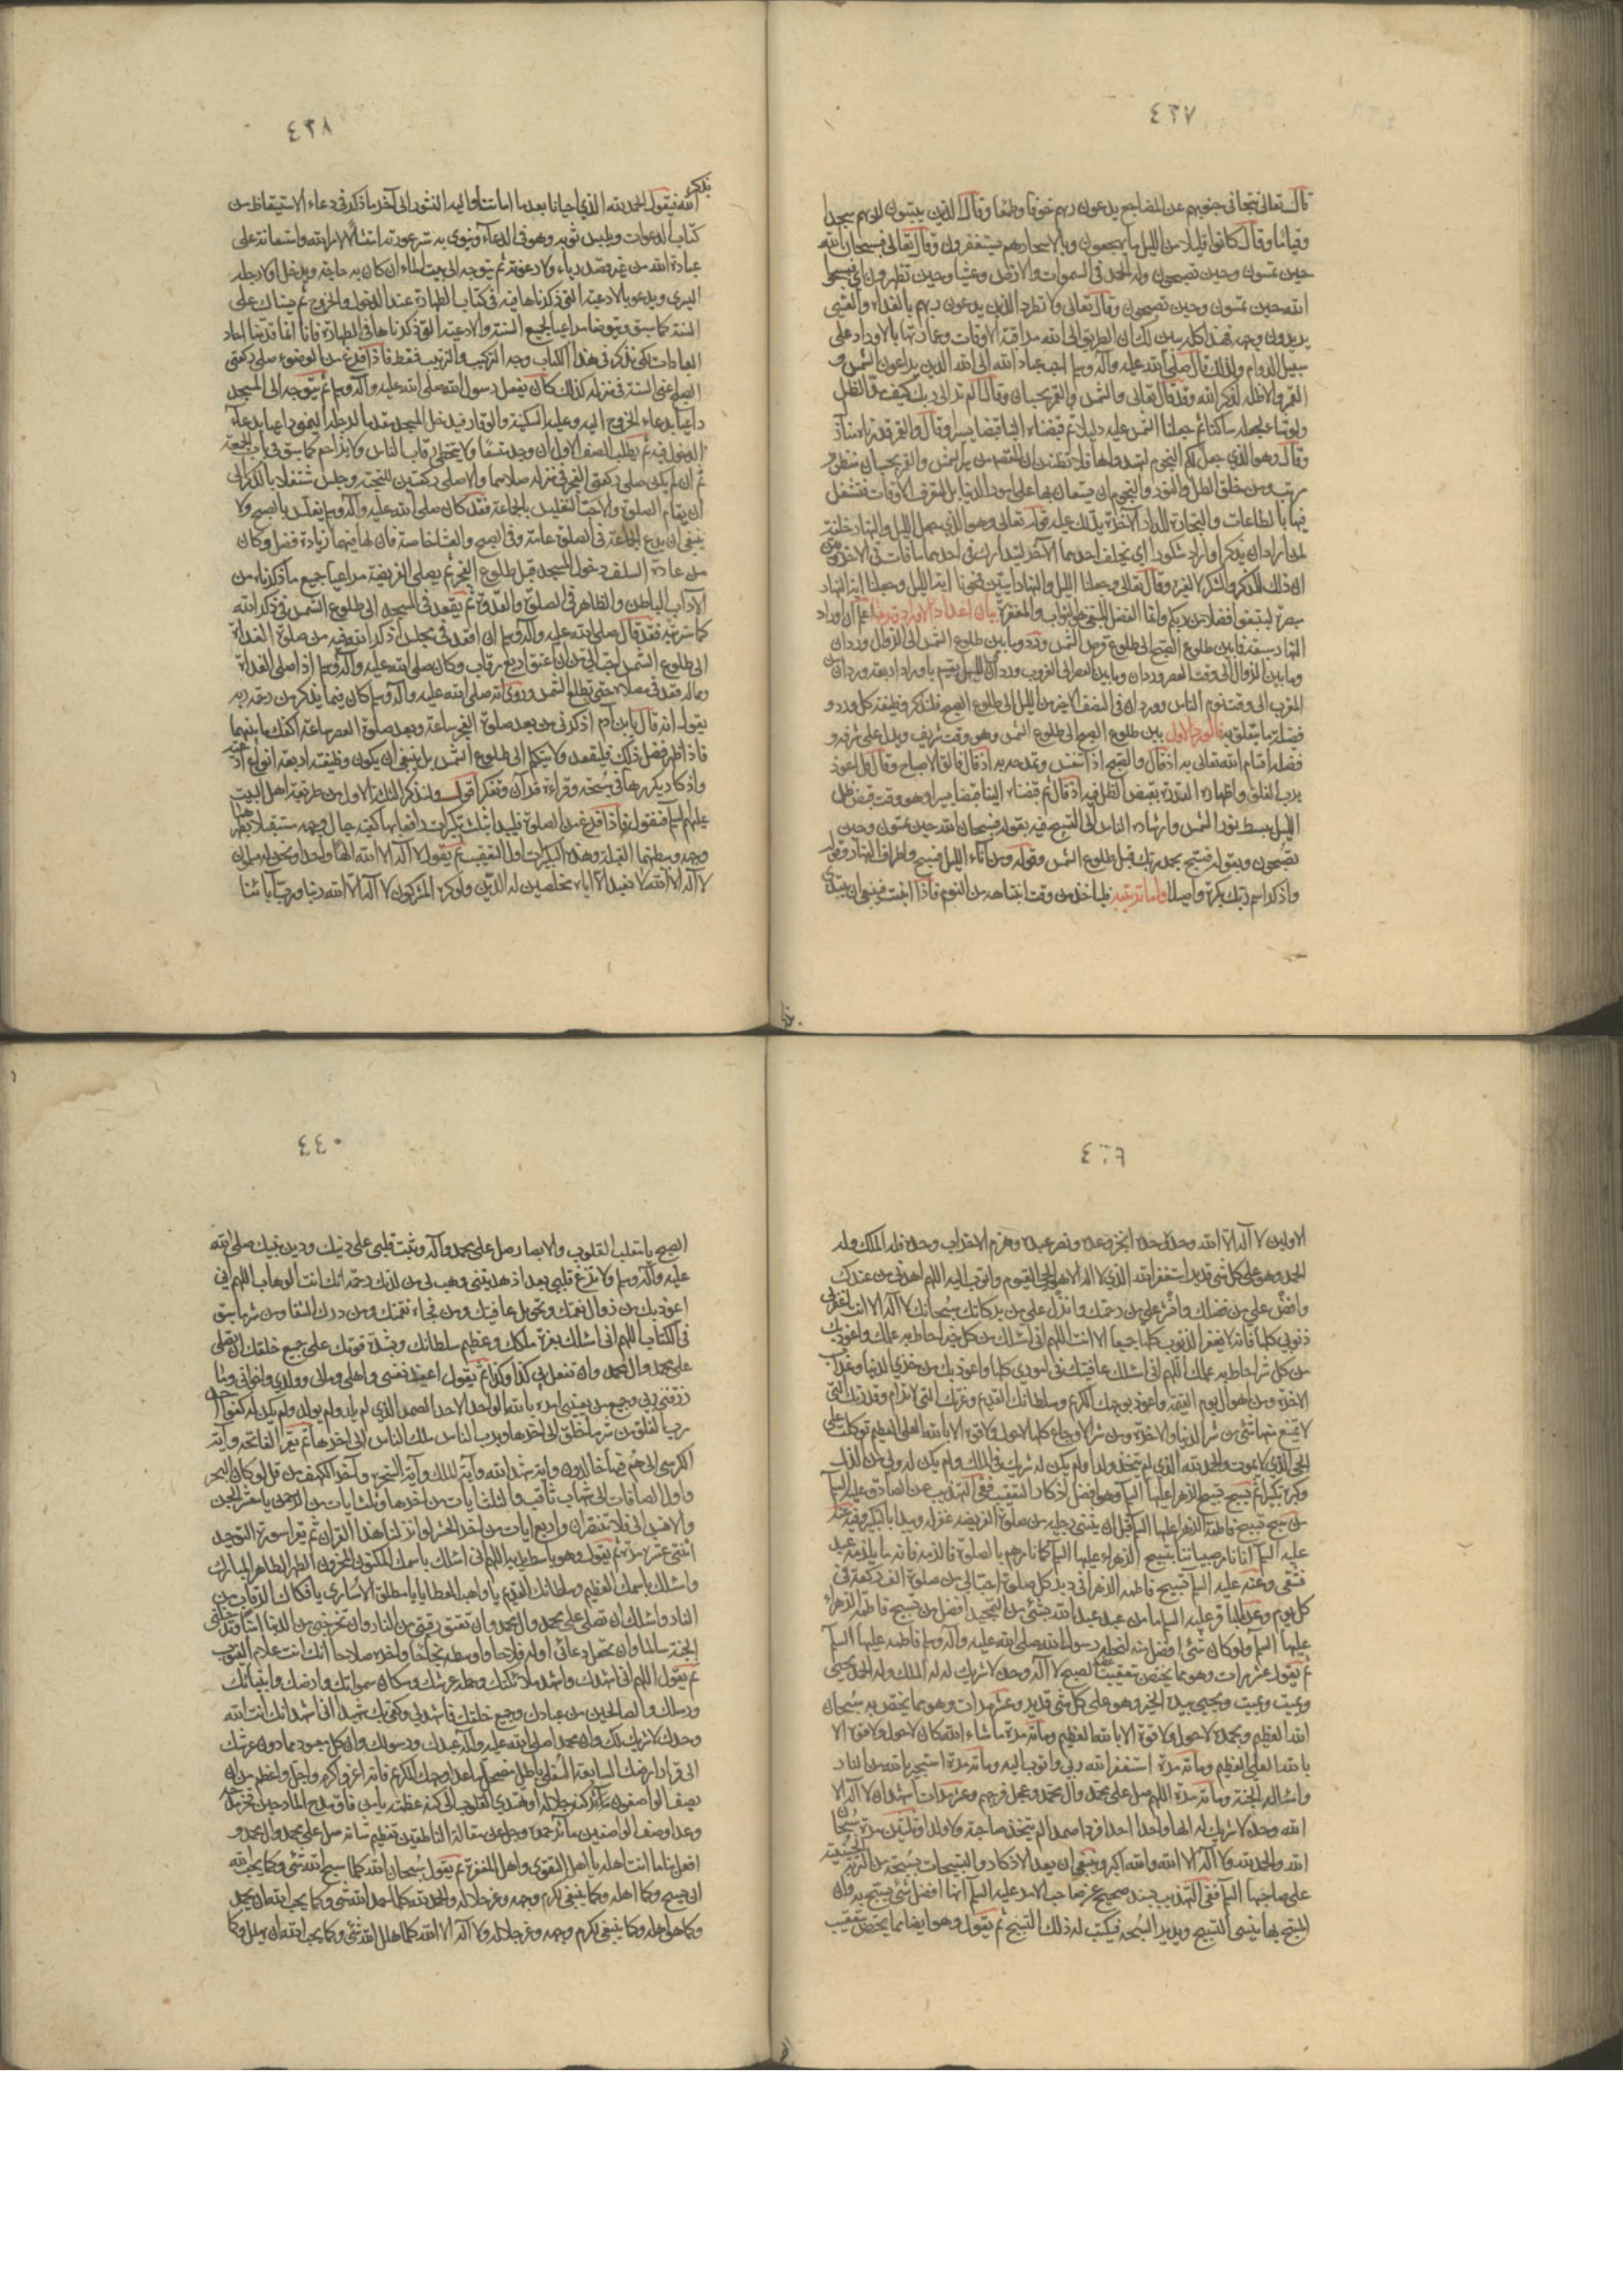 ٤٣٧
قال تعالى تتجافى جنوبهم عن المضاجع يدعون ربهم خوفا وطمعا وقال الذين يبيتون لربهم سجدا
وقياما وقال كانوا قليلا من الليل ما يهجعون وبالاسحار هم يستغفرون وقال تعالى فسبحان الله
حين تمسون وحين تصبحون وله الحمد في السموات والارض وعشيا وحين تظهرون اي فسبحوا
الله حين تمسون وحين تصبحون وقال تعالى ولا تطرد الذين يدعون ربهم بالغداة والعشي
يريدون وجهه فهذا كله يبين لك ان الطريق الى الله مراقبة الاوقات وعمارتها بالاوراد على
سبيل الدوام ولذلك قال صلى الله عليه وآله وسلم احب عباد الله الى الله الذين يراعون الشمس و
القمر والاظلة لذكر الله وقد قال تعالى والشمس والقمر بحسبان وقال الم تر الى ربك كيف مد الظل
ولو شاء لجعله ساكنا ثم جعلنا الشمس عليه دليلا ثم قبضناه الينا قبضا يسيرا وقال والقمر قدرناه منازل
وقال وهو الذي جعل لكم النجوم لتهتدوا بها فلا تظنن ان المقصود من سير الشمس والقمر بحسبان منظوم
مرتب ومن خلق الظل والنور والنجوم ان يستعان بها على امور الدنيا بل لتعرف الاوقات فتشتغل
فيها بالطاعات والتجارة للدار الآخرة يدلك عليه قوله تعالى وهو الذي جعل الليل والنهار خلفة
لمن اراد ان يذكر او اراد شكورا اي يخلف احدهما الآخر ليتدارك في احدهما ما فات في الآخر وبين
ان ذلك للذكر والشكر لا لغير وقال تعالى وجعلنا الليل والنهار آيتين فمحونا آية الليل وجعلنا آية النهار
مبصرة لتبتغوا فضلا من ربكم وانما الفضل المبتغى هو الثواب والمغفرة بيان اعداد الاوراد وترتيبها اعلم ان اوراد
النهار سبعة فما بين طلوع الصبح الى طلوع قرص الشمس ورد وما بين طلوع الشمس الى الزوال وردان
وما بين الزوال الى وقت العصر وردان وما بين العصر الى الغروب وردان والليل ينقسم باوراد اربعة وردان من
المغرب الى وقت نوم الناس ووردان في النصف الاخير من الليل الى طلوع الصبح فلنذكر وظيفة كل ورد و
فضله وما يتعلق به فالورد الاول ما بين طلوع الصبح الى طلوع الشمس وهو وقت شريف ويدل على شرفه و
فضله اقسام الله تعالى به اذ قال والصبح اذا تنفس وتمدحه به اذ قال فالق الاصباح وقال قل اعوذ
برب الفلق واظهاره القدرة بقبض الظل فيه اذ قال ثم قبضناه الينا قبضا يسيرا وهو وقت قبض ظل
الليل ببسط نور الشمس وارشاده الناس الى التسبيح فيه بقوله فسبحان الله حين تمسون وحين
تصبحون وبقوله فسبح بحمد ربك قبل طلوع الشمس وقوله ومن آناء الليل فسبح واطراف النهار وقوله
واذكر اسم ربك بكرة واصيلا واما ترتيبه فليأخذ من وقت انتباهه من النوم فاذا انتبه فينبغي ان يبتدئ
٤٣٨
بذكر
الله فيقول الحمد لله الذي احيانا بعد ما اماتنا واليه النشور الى آخر ما ذكر في دعاء الاستيقاظ من
كتاب الدعوات ويلبس ثوبه وهو في الدعاء وينوي به ستر عورته امتثالا لامر الله واستعانة على
عبادة الله من غير قصد رياء ولا رعونة ثم يتوجه الى بيت الماء ان كان به حاجة ويدخل اولا رجله
اليسرى ويدعو بالادعية التي ذكرناها فيه في كتاب الطهارة عند الدخول والخروج ثم يستاك على
السنة كما سبق ويتوضأ مراعيا لجميع السنة والادعية التي ذكرناها في الطهارة فانا انما قدمنا آحاد
العبادات لكي نذكر في هذا الكتاب وجه التركيب والترتيب فقط فاذا فرغ من الوضوء صلى ركعتي
الصبح اعني السنة في منزله كذلك كان يفعل رسول الله صلى الله عليه وآله وسلم ثم يتوجه الى المسجد
داعيا بدعاء الخروج اليه وعليه السكينة والوقار فيدخل المسجد مقدما لرجله اليمنى داعيا بدعاء
الدخول فيه ثم يطلب الصف الاول ان وجد متسعا ولا يتخطى رقاب الناس ولا يزاحم كما سبق في باب الجمعة
ثم ان لم يكن صلى ركعتي الفجر في منزله صلاهما والا صلى ركعتين للتحية وجلس مشتغلا بالذكر الى
ان يقام الصلوة والاحب التغليس بالجماعة فقد كان صلى الله عليه وآله وسلم يغلس بالصبح ولا
ينبغي ان يدع الجماعة في الصلوة عامة وفي الصبح والعشاء خاصة فان لها فيهما زيادة فضل وكان
من عادة السلف دخول المسجد قبل طلوع الفجر ثم يصلي الفريضة مراعيا جميع ما ذكرناه من
الآداب الباطن والظاهر في الصلوة والقدوة ثم يقعد في المسجد الى طلوع الشمس في ذكر الله
كما سنرتبه فقد قال صلى الله عليه وآله وسلم لان اقعد في مجلس اذكر الله فيه من صلوة الغداة
الى طلوع الشمس احب الي من ان اعتق اربع رقاب وكان صلى الله عليه وآله وسلم اذا صلى الغداة
وماله قعد في مصلاه حتى تطلع الشمس وروي انه صلى الله عليه وآله وسلم كان فيما يذكر من رحمة ربه
يقول انه قال يا بن آدم اذكرني من بعد صلوة الفجر ساعة وبعد صلوة العصر ساعة اكفك ما بينهما
فاذا ظهر فضل ذلك فليقعد ولا يتكلم الى طلوع الشمس بل ينبغي ان يكون وظيفته اربعة انواع ادعية
واذكار يكررها في سبحة وقراءة قرآن وتفكر اقول ولنذكر الثلاثة الاول من طريقة اهل البيت
عليهم السلام فنقول فاذا فرغ من الصلوة فليبدأ بثلث تكبيرات رافعا بها كفيه حيال وجهه مستقبلا بظهرهما
وجهه وببطنهما القبلة وهذه التكبيرات اول التعقيب ثم يقول لا اله الا الله الها واحدا ونحن له مسلمون
لا اله الا الله لا نعبد الا اياه مخلصين له الدين ولو كره المشركون لا اله الا الله ربنا ورب آبائنا
٤٣٩
الاولين لا اله الا الله وحده وحده انجز وعده ونصر عبده وهزم الاحزاب وحده فله الملك وله
الحمد وهو على كل شئ قدير استغفر الله الذي لا اله الا هو الحي القيوم واتوب اليه اللهم اهدني من عندك
وافض علي من فضلك وانشر علي من رحمتك وانزل علي من بركاتك سبحانك لا اله الا انت اغفر لي
ذنوبي كلها فانه لا يغفر الذنوب كلها جميعا الا انت اللهم اني اسئلك من كل خير احاط به علمك واعوذ بك
من كل شر احاط به علمك اللهم اني اسئلك عافيتك في اموري كلها واعوذ بك من خزي الدنيا وعذاب
الآخرة ومن اهوال يوم القيمة واعوذ بوجهك الكريم وسلطانك القديم وعزتك التي لا ترام وقدرتك التي
لا يمتنع منها شئ من شر الدنيا والآخرة ومن شر الاوجاع كلها لا حول ولا قوة الا بالله العلي العظيم توكلت على
الحي الذي لا يموت والحمد لله الذي لم يتخذ ولدا ولم يكن له شريك في الملك ولم يكن له ولي من الذل
وكبره تكبيرا ثم تسبيح تسبيح الزهراء عليها السلام وهو افضل اذكار التعقيب ففي التهذيب عن الصادق عليه السلام
من سبح تسبيح فاطمة الزهراء عليها السلام قبل ان يثني رجليه من صلوة الفريضة غفر له ويبدأ بالتكبير وفيه عنه
عليه السلام انا نامر صبياننا بتسبيح الزهراء عليها السلام كما نامرهم بالصلوة فالزمه فانه ما يلزمه عبد
فشقي وعنه عليه السلام تسبيح فاطمة الزهراء في دبر كل صلوة احب الي من صلوة الف ركعة في
كل يوم وعن الباقر عليه السلام ما من عبد عبد الله بشئ من التمجيد افضل من تسبيح فاطمة الزهراء
عليها السلام ولو كان شئ افضل منه لنحله رسول الله صلى الله عليه وآله وسلم فاطمة عليها السلام
ثم يقول عشر مرات وهو مما يختص بتعقيب الصبح لا اله الا الله وحده لا شريك له له الملك وله الحمد يحيي
ويميت ويميت ويحيي بيده الخير وهو على كل شئ قدير وعشر مرات وهو مما يختص به سبحان
الله العظيم وبحمده لا حول ولا قوة الا بالله العظيم ومأة مرة ما شاء الله كان لا حول ولا قوة الا
بالله العلي العظيم ومأة مرة استغفر الله ربي واتوب اليه ومأة مرة استجير بالله من النار
واسأله الجنة ومأة مرة اللهم صل على محمد وآل محمد وعجل فرجهم وعشر مرات اشهد ان لا اله الا
الله وحده لا شريك له الها واحدا احدا فردا صمدا لم يتخذ صاحبة ولا ولدا وثلثين مرة سبحان
الله والحمد لله ولا اله الا الله والله اكبر وينبغي ان يعد الاذكار والتسبيحات بسبحة من التربة الحسينية
على صاحبها السلام ففي التهذيب بسند صحيح عن صاحب الامر عليه السلام انها افضل شئ يسبح به وان
المسبح بها ينسى التسبيح ويدير السبحة فيكتب له ذلك التسبيح ثم يقول وهو ايضا مما يختص بتعقيب
٤٤٠
الصبح يا مقلب القلوب والابصار صل على محمد وآله وثبت قلبي على دينك ودين نبيك صلى الله
عليه وآله وسلم ولا تزغ قلبي بعد اذ هديتني وهب لي من لدنك رحمة انك انت الوهاب اللهم اني
اعوذ بك من زوال نعمتك وتحويل عافيتك ومن فجاءة نقمتك ومن درك الشقاء ومن شر ما سبق
في الكتاب اللهم اني اسئلك بعزة ملكك وعظيم سلطانك وبشدة قوتك على جميع خلقك ان تصلي
على محمد وآل محمد وان تفعل بي كذا وكذا ثم يقول اعيذ نفسي واهلي ومالي وولدي واخواني وما
رزقني ربي وجميع من يعنيني امره بالله الواحد الاحد الصمد الذي لم يلد ولم يولد ولم يكن له كفوا احد
برب الفلق من شر ما خلق الى آخرها وبرب الناس ملك الناس الى آخرها ثم يقرأ الفاتحة وآية
الكرسي الى هم فيها خالدون وآية شهد الله وآية الملك وآية السخرة وآخر الكهف من قل لو كان البحر
واول الصافات الى شهاب ثاقب والثلث آيات من آخرها وثلث آيات من الرحمن يا معشر الجن
والانس الى فلا تنتصران واربع آيات من آخر الحشر لو انزلنا هذا القرآن ثم يقرأ سورة التوحيد
اثنتي عشرة مرة ثم يقول وهو باسط يديه اللهم اني اسئلك باسمك المكنون المخزون الطهر الطاهر المبارك
واسئلك باسمك العظيم وسلطانك القديم يا واهب العطايا يا مطلق الاسارى يا فكاك الرقاب من
النار اسئلك ان تصلي على محمد وآل محمد وان تعتق رقبتي من النار وان تخرجني من الدنيا آمنا وتدخلني
الجنة سالما وان تجعل دعائي اوله فلاحا واوسطه نجاحا وآخره صلاحا انك انت علام الغيوب
ثم يقول اللهم اني اشهدك واشهد ملائكتك وحملة عرشك وسكان سمواتك وارضك وانبيائك
ورسلك والصالحين من عبادك وجميع خلقك فاشهد لي وكفى بك شهيدا اني اشهد انك انت الله
وحدك لا شريك لك وان محمدا صلى الله عليه وآله عبدك ورسولك وان كل معبود مما دون عرشك
الى قرار ارضك السابعة السفلى باطل مضمحل ما عدا وجهك الكريم فانه اعز واكرم واجل واعظم من ان
يصف الواصفون كنه جلاله او تهتدي القلوب الى كنه عظمته يا من فاق مدح المادحين فخر مدحه
وعدا وصف الواصفين مآثر حمده وجل عن مقالة الناطقين تعظيم شأنه صل على محمد وآل محمد و
افعل بنا ما انت اهله يا اهل التقوى واهل المغفرة ثم يقول سبحان الله كلما سبح الله شئ وكما يحب الله
ان يسبح وكما هو اهله وكما ينبغي لكرم وجهه وعز جلاله والحمد لله كلما حمد الله شئ وكما يحب الله ان يحمد
وكما هو اهله وكما ينبغي لكرم وجهه وعز جلاله ولا اله الا الله كلما هلل الله شئ وكما يحب الله ان يهلل وكما